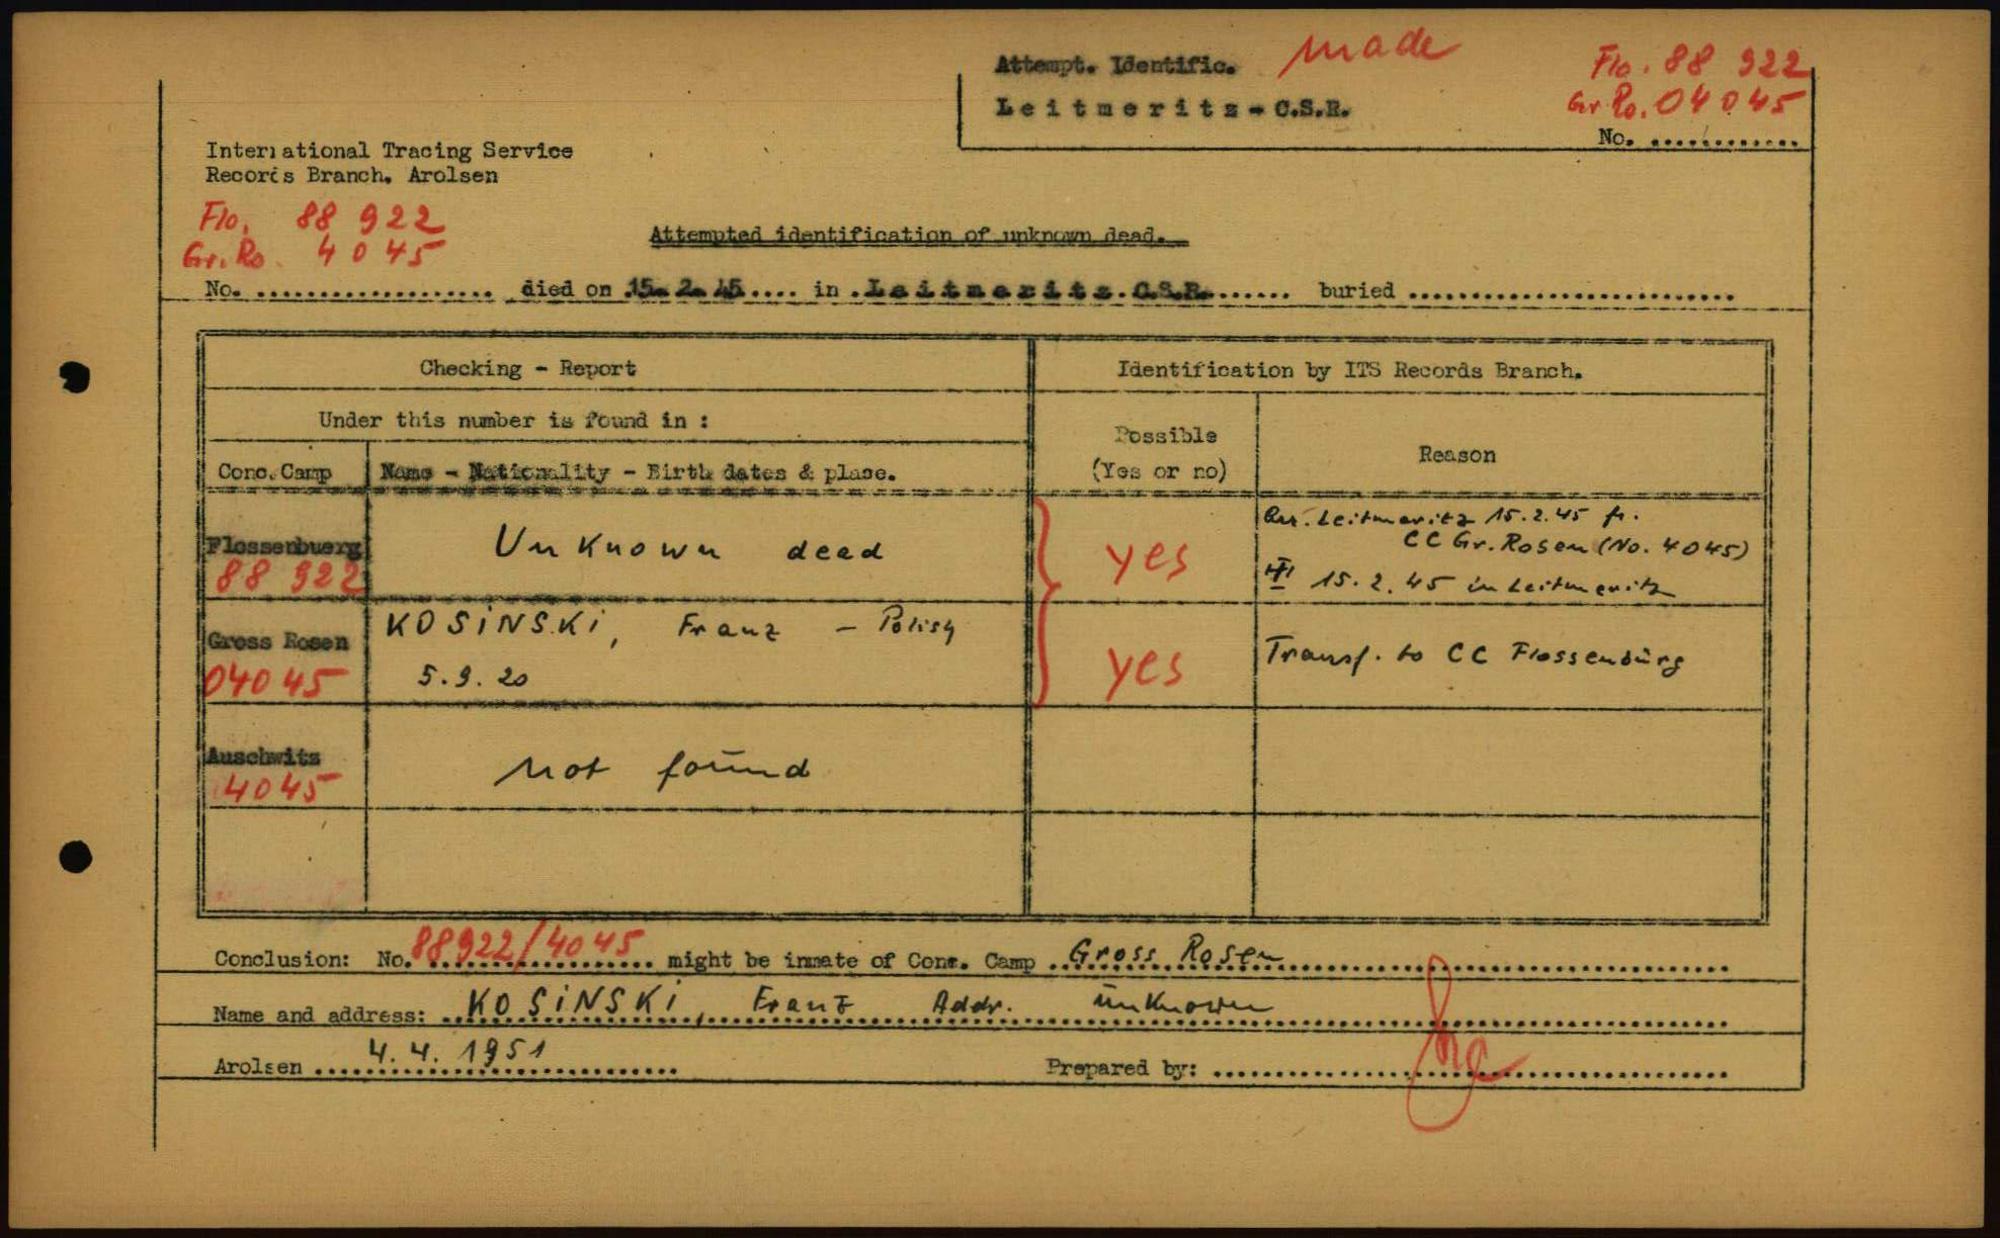 Attempt. Identific. made Flo. 88 922
Leitmeritz - C.S.R. Gr. Ro. 04045
No. ............
International Tracing Service
Records Branch. Arolsen
Flo. 88 922
Gr. Ro. 4045
Attempted identification of unknown dead.
No. .................. died on 15. 2. 45.... in .Leitmeritz. C.S.R....... buried ..........................
Checking - Report Identification by ITS Records Branch.
Under this number is found in :
Possible
(Yes or no)
Reason
Conc. Camp Name - Nationality - Birth dates & plase.
Flossenbuerg
88 922
Unknown dead
yes
Arr. Leitmeritz 15.2.45 fr.
CC Gr. Rosen (No. 4045)
15.2.45 in Leitmeritz
Gross Rosen
04045
KOSINSKI, Franz - Polish
5.9.20
yes
Transf. to CC Flossenbürg
Auschwitz
4045
not found
Conclusion: No. 88922/4045 might be inmate of Conc. Camp Gross Rosen
Name and address: KOSINSKI, Franz Addr. unknown
Arolsen 4.4.1951 Prepared by: